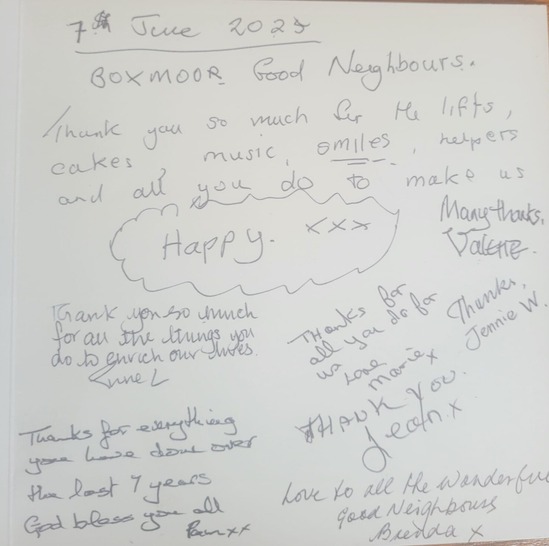 7th June 2025
BOXMOOR Good Neighbours.
Thank you so much for the lifts,
cakes, music, smiles, helpers
and all you do to make us
Happy. xxx
Many thanks,
Valerie.
Thank you so much
for all the things you
do to enrich our lives.
Anne L
Thanks for
all you do for
us
Love
Marie x
Thanks,
Jennie W.
THANK YOU.
Jean x
Thanks for everything
you have done over
the last 7 years
God bless you all
Pam xx
Love to all the wonderful
Good Neighbours
Brenda x